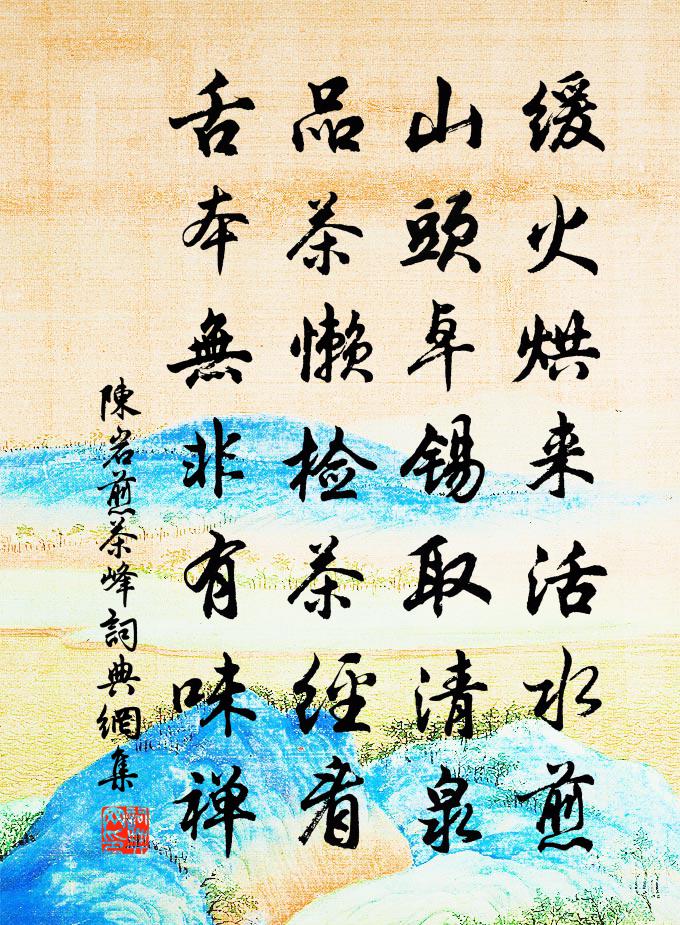 缓火烘来活水煎
山頭卓锡取清泉
品茶懒检茶經看
舌本無非有味禅
陳岩煎茶峰詞典網集